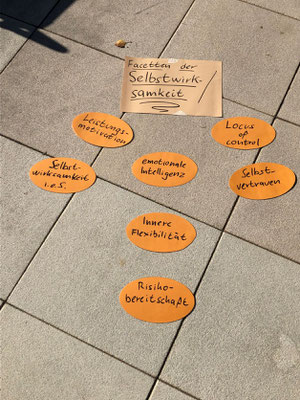 Facetten der
Selbstwirk-
samkeit
Leistungs-
motivation
Locus of
control
Selbst-
wirksamkeit
i.e.S.
emotionale
Intelligenz
Selbst-
vertrauen
Innere
Flexibilität
Risiko-
bereitschaft